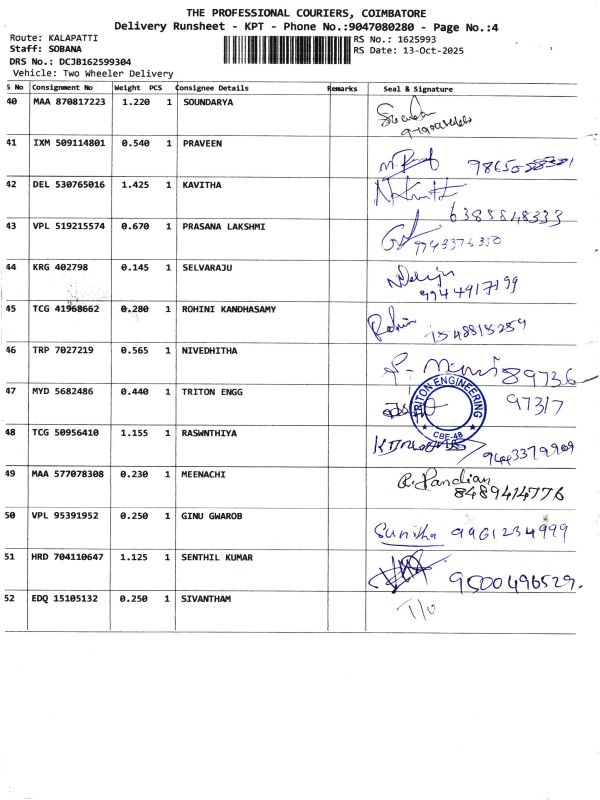 THE PROFESSIONAL COURIERS, COIMBATORE
Delivery Runsheet - KPT - Phone No.:9047080280 - Page No.:4
Route: KALAPATTI
RS No.: 1625993
Staff: SOBANA
RS Date: 13-Oct-2025
DRS No.: DCJB162599304
Vehicle: Two Wheeler Delivery
S No Consignment No Weight PCS Consignee Details Remarks Seal & Signature
40 MAA 870817223 1.220 1 SOUNDARYA
41 IXM 509114801 0.540 1 PRAVEEN
42 DEL 530765016 1.425 1 KAVITHA
6385848333
43 VPL 519215574 0.670 1 PRASANA LAKSHMI
9743376350
44 KRG 402798 0.145 1 SELVARAJU
9944917199
45 TCG 41968662 0.280 1 ROHINI KANDHASAMY
46 TRP 7027219 0.565 1 NIVEDHITHA
89736
97317
47 MYD 5682486 0.440 1 TRITON ENGG
TRITON ENGINEERING
CBE-48
48 TCG 50956410 1.155 1 RASWNTHIYA
9443379909
49 MAA 577078308 0.230 1 MEENACHI
R. Pandian
8489414776
50 VPL 95391952 0.250 1 GINU GWAROB
Sunitha 9961234999
51 HRD 704110647 1.125 1 SENTHIL KUMAR
9500496529.
52 EDQ 15105132 0.250 1 SIVANTHAM